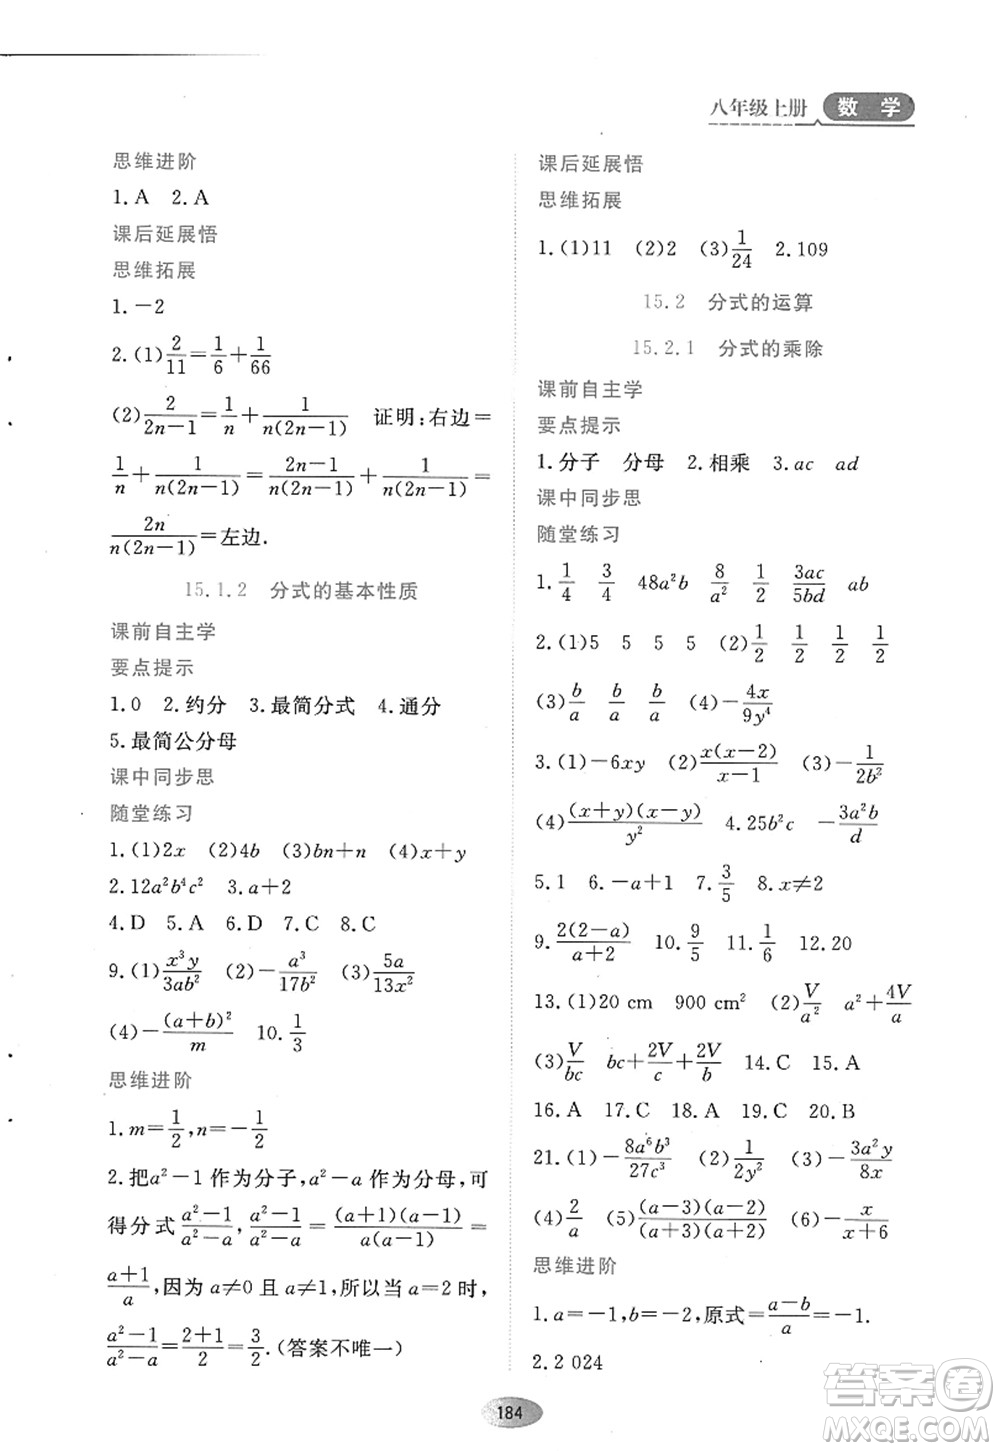 八年级上册 数学
思维进阶
1.A 2.A
课后延展悟
思维拓展
1.-2
2.(1)2/11=1/6+1/66
(2)2/(2n-1)=1/n+1/(n(2n-1)) 证明:右边=
1/n+1/(n(2n-1))=(2n-1)/(n(2n-1))+1/(n(2n-1))=
2n/(n(2n-1))=左边.
15.1.2 分式的基本性质
课前自主学
要点提示
1.0 2.约分 3.最简分式 4.通分
5.最简公分母
课中同步思
随堂练习
1.(1)2x (2)4b (3)bn+n (4)x+y
2.12a²b⁴c² 3.a+2
4.D 5.A 6.D 7.C 8.C
9.(1)x³y/3ab² (2)-a³/17b² (3)5a/13x²
(4)-(a+b)²/m 10.1/3
思维进阶
1.m=1/2,n=-1/2
2.把a²-1作为分子,a²-a作为分母,可
得分式(a²-1)/(a²-a),(a²-1)/(a²-a)=((a+1)(a-1))/(a(a-1))=
(a+1)/a,因为a≠0且a≠1,所以当a=2时,
(a²-1)/(a²-a)=(2+1)/2=3/2.(答案不唯一)
课后延展悟
思维拓展
1.(1)11 (2)2 (3)1/24 2.109
15.2 分式的运算
15.2.1 分式的乘除
课前自主学
要点提示
1.分子 分母 2.相乘 3.ac ad
课中同步思
随堂练习
1.1/4 3/4 48a²b 8/a² 1/2 3ac/5bd ab
2.(1)5 5 5 5 (2)1/2 1/2 1/2 1/2
(3)b/a b/a b/a (4)-4x/9y⁴
3.(1)-6xy (2)x(x-2)/(x-1) (3)-1/2b²
(4)(x+y)(x-y)/y² 4.25b²c -3a²b/d
5.1 6.-a+1 7.3/5 8.x≠2
9.2(2-a)/(a+2) 10.9/5 11.1/6 12.20
13.(1)20 cm 900 cm² (2)V/a² a²+4V/a
(3)V/bc bc+2V/c+2V/b 14.C 15.A
16.A 17.C 18.A 19.C 20.B
21.(1)-8a⁶b³/27c³ (2)1/2y² (3)-3a²y/8x
(4)2/a (5)(a-3)(a-2)/(a+3)(a+2) (6)-x/(x+6)
思维进阶
1.a=-1,b=-2,原式=(a-b)/a=-1.
2.2 024
184
答案圈
MXQE.COM